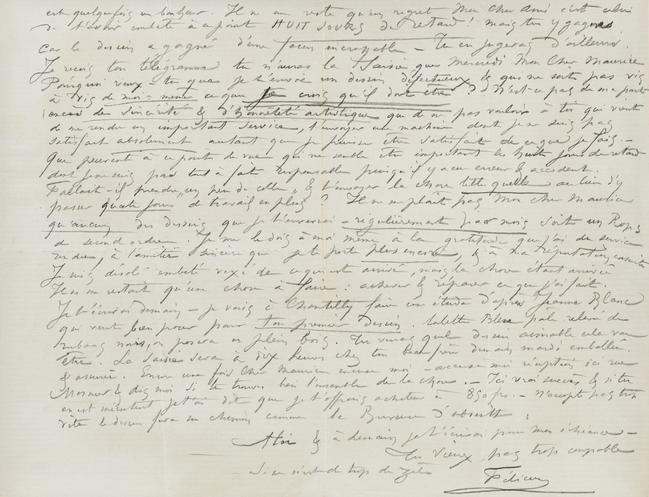 est quelquefois un bonheur. Il ne me reste qu'un regret Mon Cher Ami c'est celui
de t'avoir embêté à ce point HUIT JOURS de retard! mais tu y gagnes
car le dessin a gagné d'une façon incroyable — Tu en jugeras d'ailleurs.
Je reçois ton télégramme tu n'auras la Saisie que Mercredi Mon Cher Maurice
Pourquoi veux-tu que je t'envoie un dessin défectueux & qui ne sorte pas vis
à vis de moi-même ce que je crois qu'il doit être? N'est-ce pas de ma part
encore de sincérité & d'honnêteté artistique que de ne pas vouloir à toi qui vient
de me rendre un important service, t'envoyer une machine dont je ne suis pas
satisfait absolument autant que je puisse être satisfait de ce que je fais —
Que peuvent à ce point de vue qui me semble être important les huit jours de retard
dont je ne suis pas tout à fait responsable puisqu'il y a eu erreur & accident.
Fallait-il prendre un peu de colle, & t'envoyer la chose telle quelle au lieu d'y
passer quatre jours de travail en plus? Il ne me plait pas Mon cher Maurice
qu'aucun des dessins que je t'enverrai — régulièrement par mois soit un Rops
de second ordre. Je me le dois à moi même à la gratitude que j'ai du service
rendu, à l'amitié sincère que je te porte plus encore, & à ma réputation ensuite
Je suis désolé embêté vexé de ce qui est arrivé, mais la chose étant arrivée
il ne me restait qu'une chose à faire: achever & réparer ce que j'ai fait.
Je t'écrirai demain — je vais à Chantilly faire une étude d'après Jeanne Blanc
qui vient bien poser pour ton premier dessin. toilette Bleu pâle relevé de
rubans noirs, on posera en plein bois. Tu verras quel dessin aimable cela va
être. La Saisie sera à dix heures chez ton beau père demain mardi emballée
& assurée. Encore une fois cher Maurice excuse moi — accuse moi réception ici rue
Mosnier & dis moi si tu trouves bien l'ensemble de la chose. — Ici vrai succès & si tu
en est mécontent je t'ai dit que je t'offrais acheter à 850 frs. — N'accepte pas trop
vite le dessin fera son chemin comme la Buveuse d'absinthe!
à toi & à demain, je t'écrirai pour mes échéances —
Ton Vieux pas trop coupable
Si ce n'est de trop de zèle
Félicien